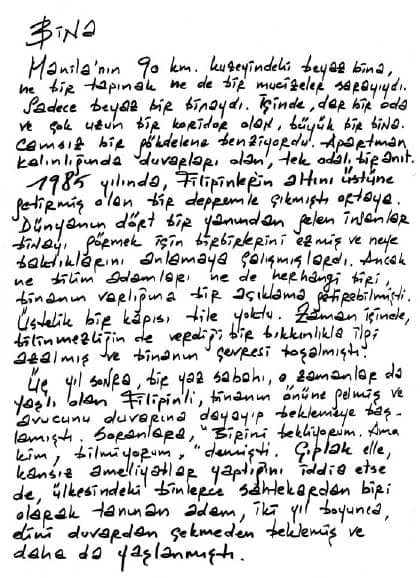 BİNA
Manila'nın 90 km. kuzeyindeki beyaz bina,
ne bir tapınak ne de bir mucizeler sarayıydı.
Sadece beyaz bir binaydı. İçinde, dar bir oda
ve çok uzun bir koridor olan, büyük bir bina.
Camsız bir gökdelene benziyordu. Apartman
kalınlığında duvarları olan, tek odalı bir anıt.
1985 yılında, Filipinlerin altını üstüne
getirmiş olan bir depremle çıkmıştı ortaya.
Dünyanın dört bir yanından gelen insanlar
binayı görmek için birbirlerini ezmiş ve neye
baktıklarını anlamaya çalışmışlardı. Ancak
ne bilim adamları ne de herhangi biri,
binanın varlığına bir açıklama getirebilmişti.
Üstelik bir kapısı bile yoktu. Zaman içinde,
bilinmezliğin de verdiği bir bıkkınlıkla ilgi
azalmış ve binanın çevresi boşalmıştı.
Üç yıl sonra, bir yaz sabahı, o zamanlar da
yaşlı olan Filipinli, binanın önüne gelmiş ve
avucunu duvarına dayayıp beklemeye baş-
lamıştı. Soranlara, "Birini bekliyorum. Ama
kim, bilmiyorum," demişti. Çıplak elle,
kansız ameliyatlar yaptığını iddia etse
de, ülkesindeki binlerce sahtekardan biri
olarak tanınan adam, iki yıl boyunca,
elini duvardan çekmeden beklemiş ve
daha da yaşlanmıştı.